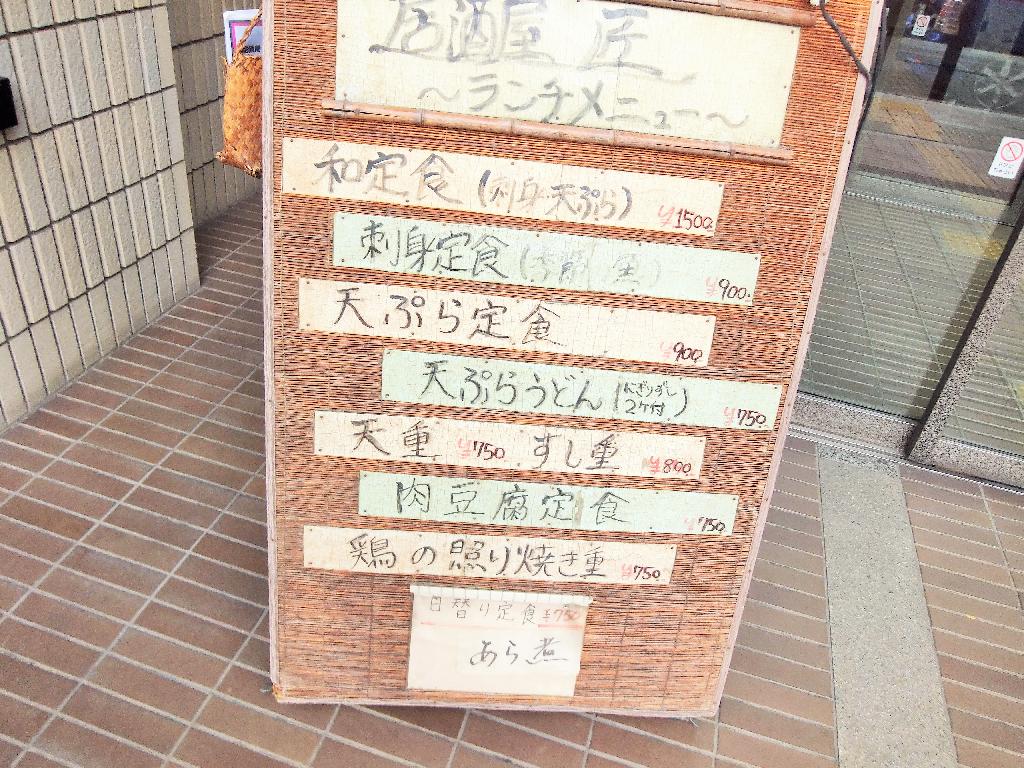 居酒屋 匠
～ランチメニュー～
和定食(刺身天ぷら) ¥1500
刺身定食 ¥900.
天ぷら定食 ¥900
天ぷらうどん(にぎりずし 2ケ付) ¥750
天重 ¥750 すし重 ¥800
肉豆腐定食 ¥750
鶏の照り焼き重 ¥750
日替り定食¥750
あら煮